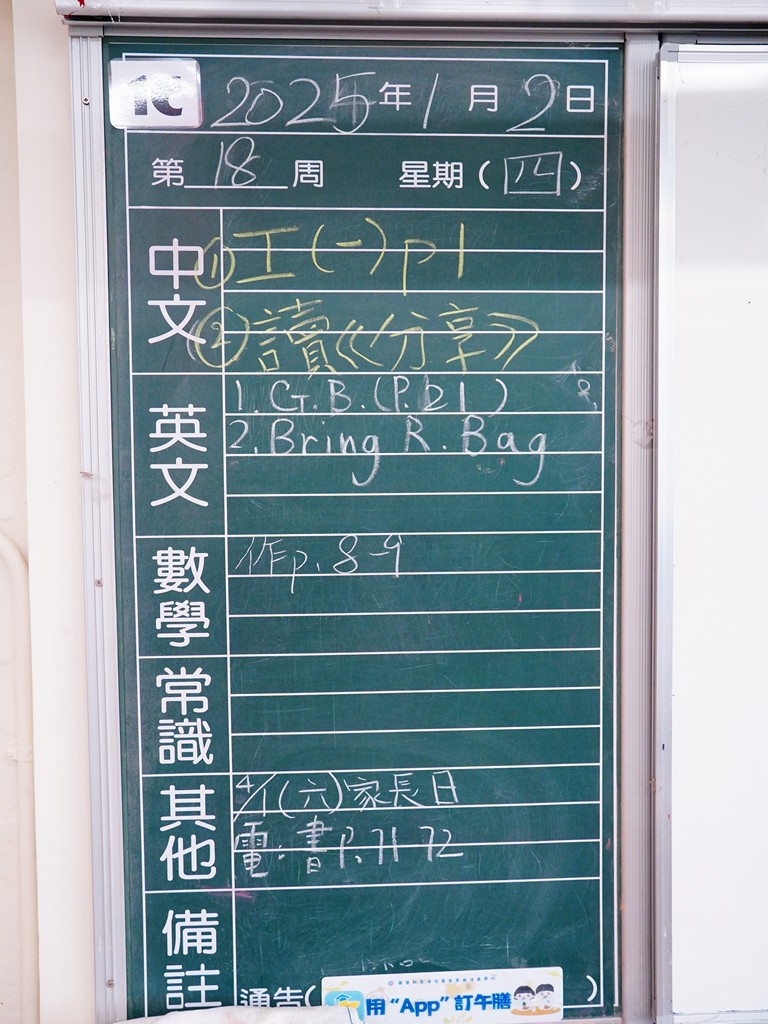 1C 2025年1月2日
第18周 星期(四)
中文
①工(一)p1
②讀《分享》
英文
1. G.B.(P.21)
2. Bring R. Bag
數學
作p. 8-9
常識
其他
4/1(六)家長日
電.書P.71-72
備註
通告(
用“App”訂午膳
)